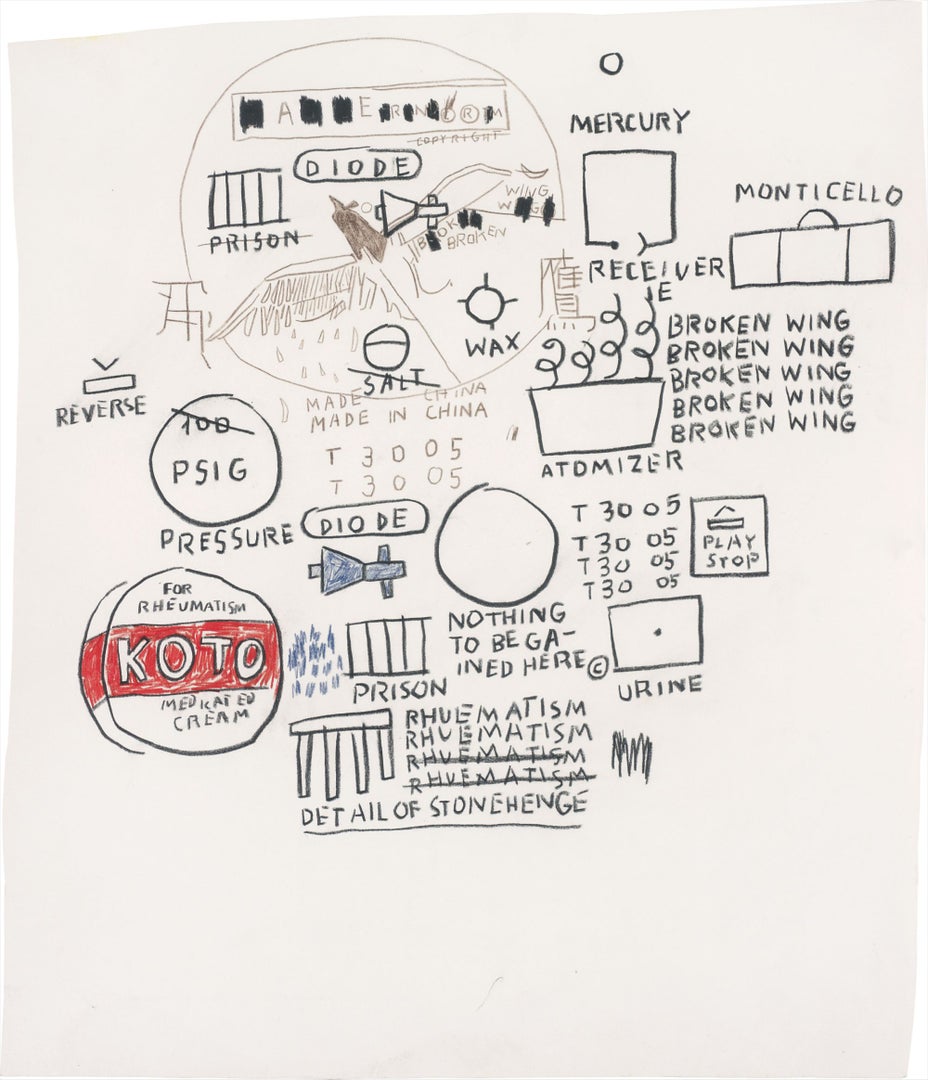 COPYRIGHT
DIODE
PRISON
WING
WING
BROKEN
BROKEN
MERCURY
MONTICELLO
RECEIVER
IE
WAX
SALT
BROKEN WING
BROKEN WING
BROKEN WING
BROKEN WING
BROKEN WING
ATOMIZER
REVERSE
100
PSIG
PRESSURE
MADE CHINA
MADE IN CHINA
T 3 0 05
T 3 0 05
DIODE
T 30 05
T 30 05
T 30 05
T 30 05
PLAY
STOP
FOR
RHEUMATISM
KOTO
MEDICATED
CREAM
PRISON
NOTHING
TO BE GA-
INED HERE ©
URINE
RHUEMATISM
RHUEMATISM
RHUEMATISM
RHUEMATISM
DETAIL OF STONEHENGE